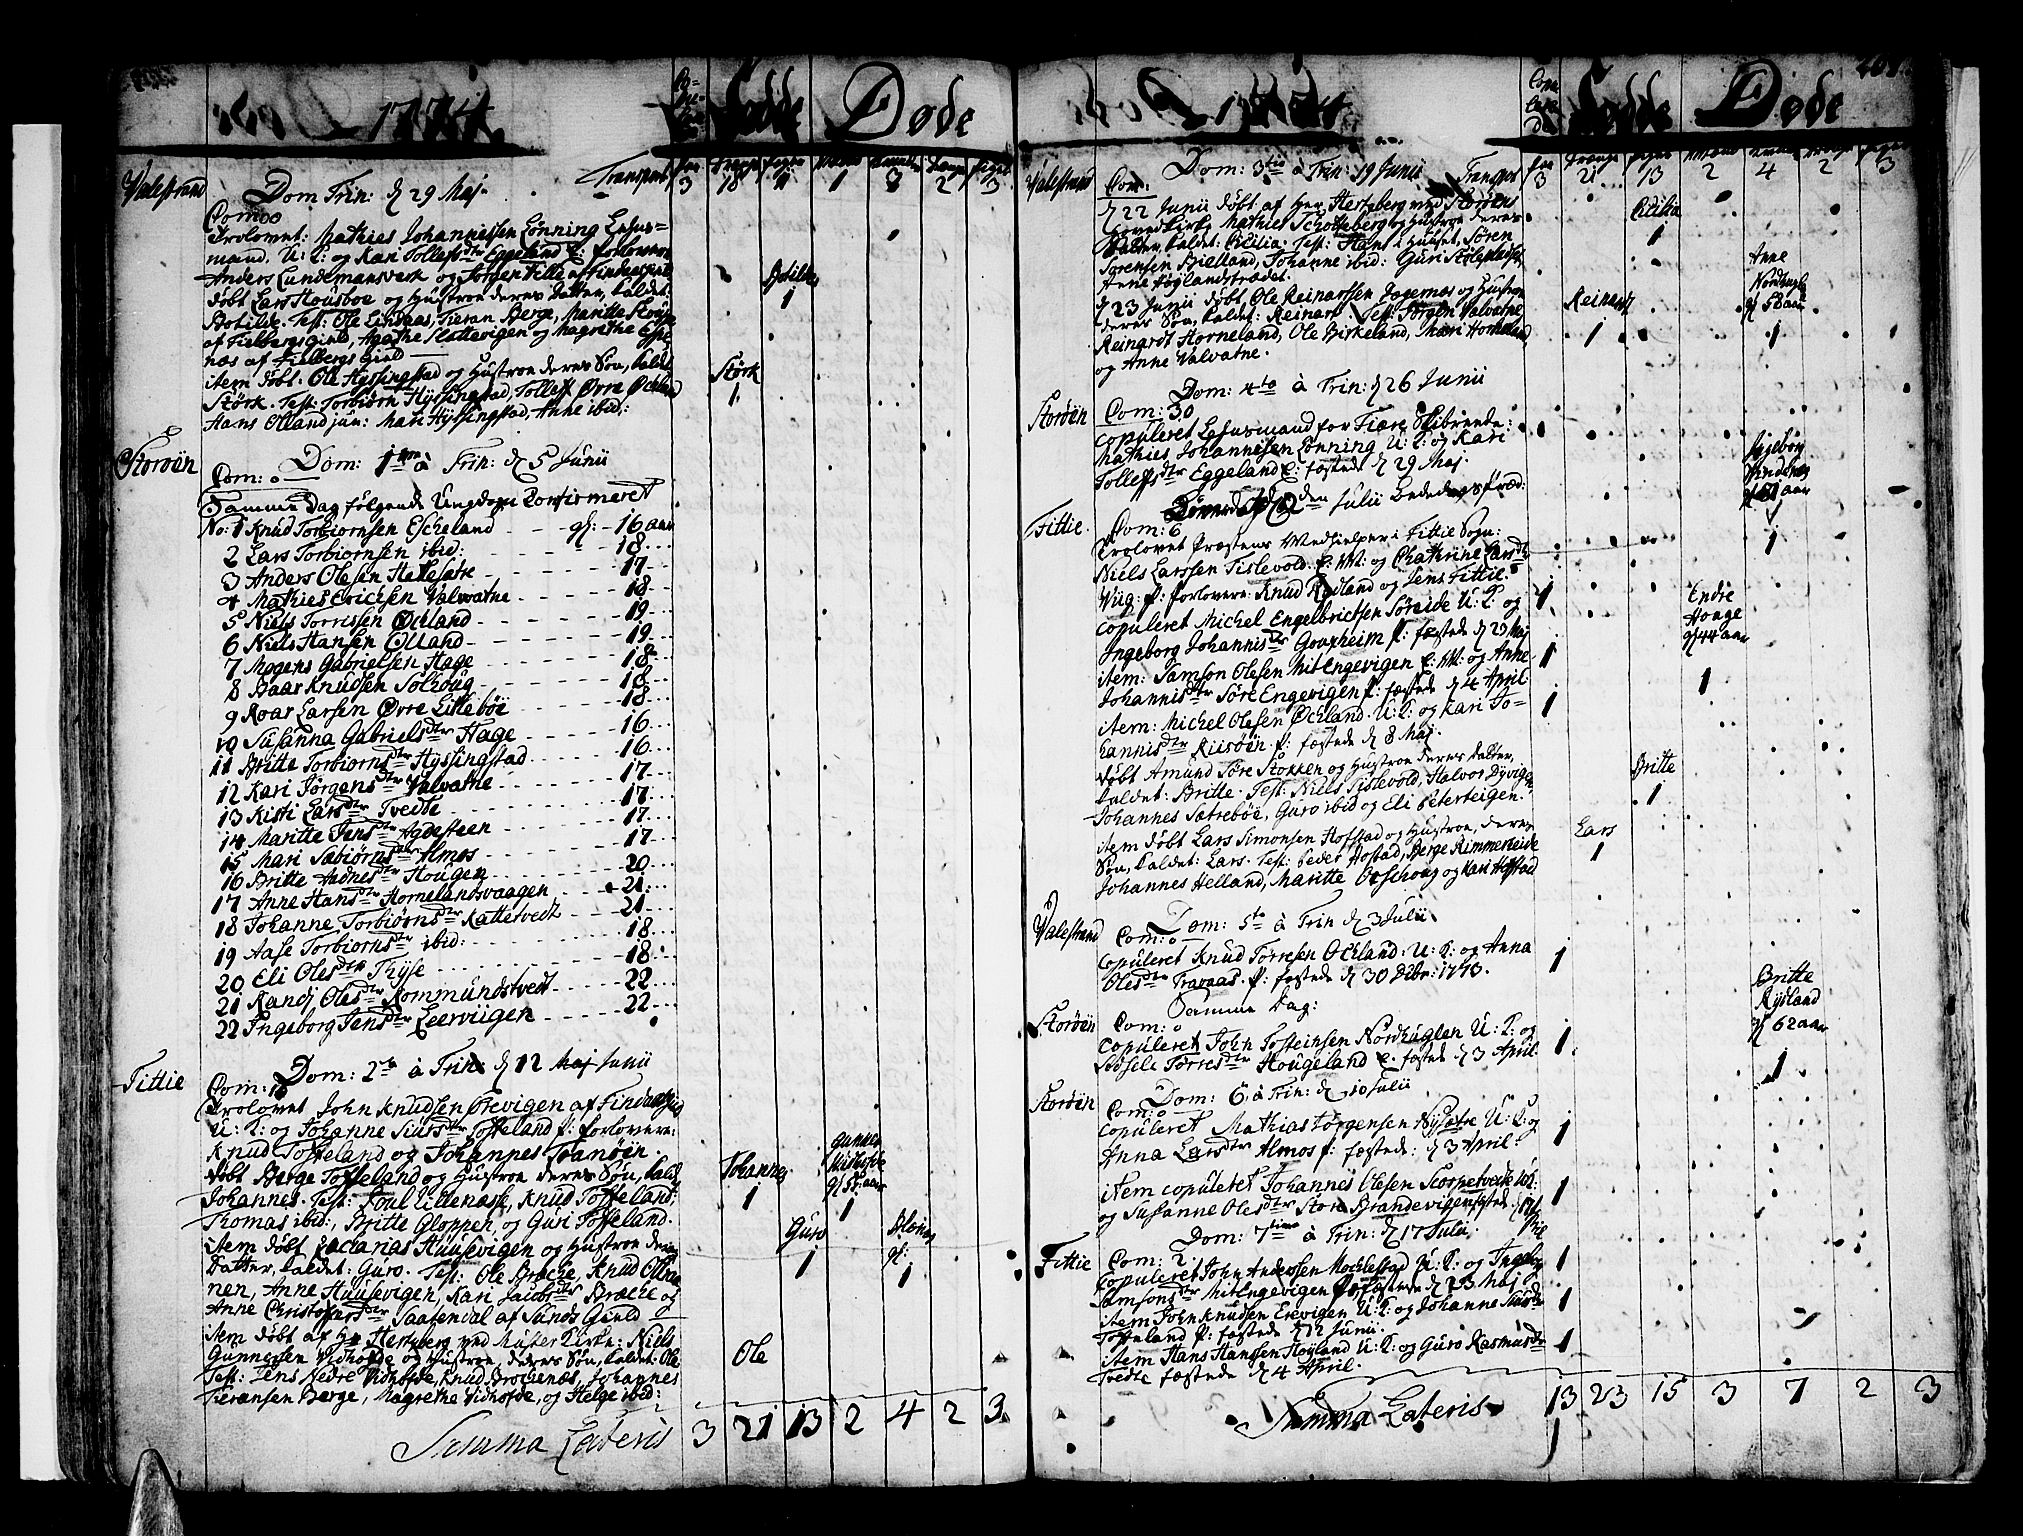 1774.
Fødde
Døde
Valestrand
Dom Trin: d 29 Maj.
Transport 3 18 11 1 3 2 3
Com: 0
Trolovet: Mathies Johannessen Lønning Lehns=
mand, U: K: og Kari Tollefsdtr Eggeland P: forlovere
Anders Lundemanswerk og Torgen Tille af Findaasgield
døbt Lars Housboe og Hustroe deres Datter, kaldet
Botilde. Test: Ole Lindaas, Fieran Berge, Maritte
af Fielbergs Gield, Agathe Slottevigen og Magrethe
næs af Fielbergs Gield
Botilde
1
item døbt. Ole Hyssingstad og Hustroe deres Søn, kaldet
Størk. Test: Torbiørn Hyssingstad, Tollef Øvre Ochland
Hans Olland jun: Mari Hyssingstad, Anne ibid:
Størk
1.
Storøen
Dom: 1ma à Trin: d 5 Junii
Com: 0
Samme Dag følgende Ungdom Confirmeret
No: 1 Knud Torbiornsen Escheland - - gl: - 16 aar
2 Lars Torbiornsen ibid: - - - 18
3 Anders Olesen Hallesætre - - - 17
4 Mathies Erichsen Valvatne - - - 18
5 Niels Torrissen Ochland - - - 19
6 Niels Hansen Olland - - - 19
7 Mogens Gabrielsen Hage - - - 18
8 Baar Knudsen Solhoug - - - 18
9 Roar Larsen Øvre Littebøe - - - 18
10 Susanna Gabrielsdtr Hage - - - 16
11 Britte Torbiornsdtr Hyssingstad - - - 16
12 Kari Jørgensdtr Valvatne - - - 17
13 Kisti Larsdtr Tvedte - - - 17
14 Maritte Jensdtr Agdesteen - - - 17
15 Mari Sæbiørnsdtr Almos - - - 17
16 Britte Aadnesdtr Hougen - - - 20
17 Anne Hansdtr Hornelandsvaagen - - - 21
18 Johanne Torbiørnsdtr Kattetvedt - - - 21
19 Aase Torbiornsdtr ibid: - - - 18
20 Eli Olesdtr Thyse - - - 18
21 Randj Olesdtr Rommundstvedt - - - 22
22 Ingeborg Jensdtr Leerviigen - - - 22
Fittie
Dom: 2da à Trin: d 12 Maj Junii
Com:
Trolovet John Knudsen Ørevigen af Findaasgield
U: K: og Johanne Siursdtr Tofteland P: forlovere:
Knud Tofteland og Johannes Tranøen.
døbt Berge Tofteland og Hustroe deres Søn, kaldet
Johannes. Test: Poul Lillenæss, Knud Tofteland,
Thomas ibid:, Britte Gloppen, og Guri Tofteland.
Johannes
1
Gunner
gl 55 aar
1
item døbt Zacharias Huusevigen og Hustroe deres
Datter, kaldet: Guro. Test: Ole Bræche, Knud
nen, Anne Huusevigen, Kari Jacobsdtr Bræche og
Anne Christophersdtr Saatendal af Sunds Gield
Guro
1
gl:
1
item døbt af Hr Hertzberg ved Muster Kirke: Niels
Gunnersen Vidhofde og Hustroe, deres Søn, kaldet: Ole
Test: Jens Nedre Vidhofde, Knud Brochenæs, Johannes
Fieransen Berge, Magrethe Vidhofde, og Helge ibid:
Ole
Summa Lateris 3 21 13 2 4 2 3
1774
Fødde
Døde
Valestrand
Dom: 3tia à Trin: 19 Junii
Transport 3 21 13 2 4 2 3
Com:
d 22 Junii døbt af Her Hertzberg ved Storøens
Hovedkirke Mathies Scholtzberg og Hustroe deres
Datter, kaldet: Cicilia: Test: Hans i Huuset, Søren
Sørensen Bielland, Johanne ibid: Guri
Anne Høylandstrædet.
Cicilia
1
Anne
Nordhugle
gl 58 aar
1
d 23 Junii døbt Ole Reinartsen Jagernæs og Hustroe
deres Søn, kaldet: Reinart. Test: Jørgen Valvatne
Reinardt Horneland, Ole Birkeland, Mari Horneland
og Anne Valvatne.
Reinardt
1
Storøen
Dom: 4ta à Trin: d 26 Junii
Com: 30
copuleret Lehnsmand for Fiære Skibrende:
Mathies Johannesen Lønning U: K: og Kari
Tollefsdtr Eggeland P: fæstede d 29 Maj.
Ingebor
gl 81 aar
1
Fittie.
den Julii Bededags Præd:
Com: 6
Trolovet Præstens Medhielper i Fittie Sogn:
Niels Larssen Tislevold. E: M: og Chatrine Larsdtr
Viig. P: forlovere: Knud Rydland og Jens Fittie.
copuleret Michel Engelbrictsen Søreide U: K: og
Ingeborg Johannisdtr Gouxheim P: fæstede d 29 Maj
item: Samson Olesen Mit Engevigen E: M: og Anne
Johannisdtr Søre Engevigen P: fæstede d 4 April
item: Michel Olesen Ochland. U: K: og Kari Jo=
hannisdtr Riisøen. P: fæstede d 8 Maj.
1
1
1
Endre
Houge
gl 44 aar
1
døbt Amund Søre Stokken og Hustroe deres Datter,
kaldet: Britte. Test: Niels Tislevold, Halvor Dyvigen
Johannes Sætrebøe, Guro ibid og Eli Peterteigen.
Britte
1
item døbt Lars Simonsen Hofstad og Hustroe, deres
Søn, kaldet: Lars. Test: Peder Hofstad, Berge Rimmereide
Johannes Helland, Maritte og Kari Hofstad
Lars
1
Valestrand
Dom: 5ta à Trin d 3 Julii
Com: 0
copuleret Knud Torresen Ochland. U: K: og Anna
Olesdtr Travaas P: fæstede d 30 Xbr: 1773.
1
Britte
Rydland
gl 62 aar
1
Storøen
Samme Dag:
Com: 0
copuleret John Tosteinsen Nordhuglen U: K: og
Sidsele Torresdtr Hougeland P: fæstede d 3 April
1
Storøen
Dom: 6 à Trin: d 10 Julii
Com: 0
copuleret Mathias Jørgensen Nysætre U: K: og
Anna Larsdtr Almos P: fæstede: d 3 April.
1
item copuleret Johannes Olesen Scorpetvedt U: K:
og Susanne Olesdtr Store Brandevigen fæstede
1
Fittie
Dom: 7tima à Trin: d 17 Julii.
Com: 2
copuleret John Andersen Mochlestad U: K: og Ingeborg
Samsonsdtr Mit Engevigen P: fæstede d 23 Maj
item John Knudsen Erevigen U: K: og Johanne Siursdtr
Tofteland P: fæstede d 12 Junii.
item Hans Hanssen Høyland U: K: og Guro Rasmusdtr
Tvedte fæstede d 4 April.
1
1
1
Summa Lateris 13 23 15 3 7 2 3